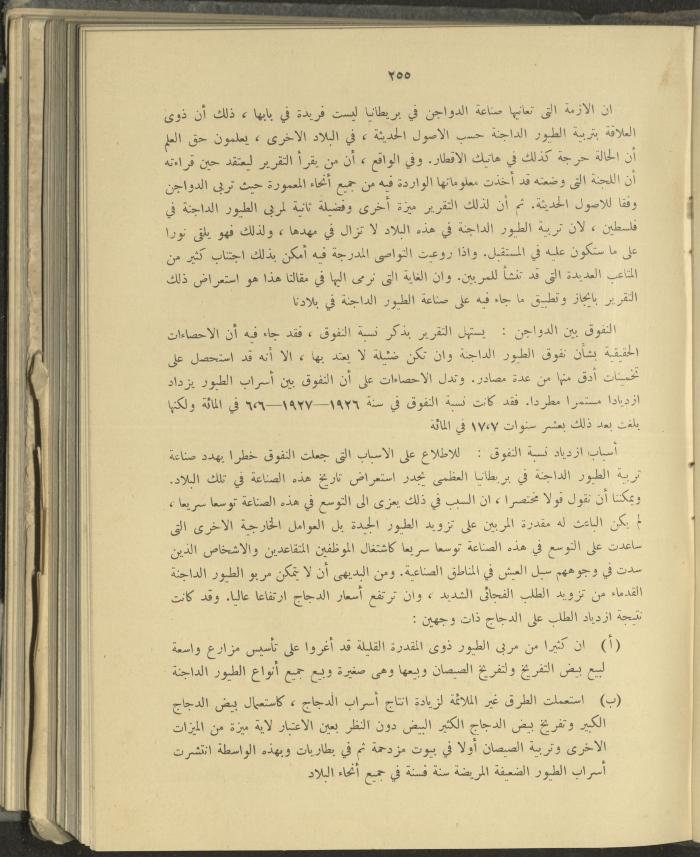 ٢٥٥
ان الازمة التى تعانيها صناعة الدواجن في بريطانيا ليست فريدة في بابها ، ذلك أن ذوى
العلاقة بتربية الطيور الداجنة حسب الاصول الحديثة ، في البلاد الاخرى ، يعلمون حق العلم
أن الحالة حرجة كذلك في هاتيك الاقطار. وفي الواقع ، أن من يقرأ التقرير ليعتقد حين قراءته
أن اللجنة التى وضعته قد أخذت معلوماتها الواردة فيه من جميع أنحاء المعمورة حيث تربى الدواجن
وفقا للاصول الحديثة. ثم أن لذلك التقرير ميزة أخرى وفضيلة ثانية لمربى الطيور الداجنة في
فلسطين ، لان تربية الطيور الداجنة في هذه البلاد لا تزال في مهدها ، ولذلك فهو يلقى نورا
على ما ستكون عليه في المستقبل. واذا روعيت التواصى المدرجة فيه أمكن بذلك اجتناب كثير من
المتاعب العديدة التى قد تنشأ للمربين. وان الغاية التى نرمى اليها في مقالنا هذا هو استعراض ذلك
التقرير بايجاز وتطبيق ما جاء فيه على صناعة الطيور الداجنة في بلادنا
النفوق بين الدواجن : يستهل التقرير بذكر نسبة النفوق ، فقد جاء فيه أن الاحصاءات
الحقيقية بشأن نفوق الطيور الداجنة وان تكن ضئيلة لا يعتد بها ، الا أنه قد استحصل على
تخمينات أدق منها من عدة مصادر. وتدل الاحصاءات على أن النفوق بين أسراب الطيور يزداد
ازديادا مستمرا مطردا. فقد كانت نسبة النفوق في سنة ١٩٢٦—١٩٢٧—٦٫٦ في المائة ولكنها
بلغت بعد ذلك بعشر سنوات ١٧٫٧ في المائة
أسباب ازدياد نسبة النفوق : للاطلاع على الاسباب التى جعلت النفوق خطرا يهدد صناعة
تربية الطيور الداجنة في بريطانيا العظمى يجدر استعراض تاريخ هذه الصناعة في تلك البلاد.
ويمكننا أن نقول قولا مختصرا ، ان السبب في ذلك يعزى الى التوسع في هذه الصناعة توسعا سريعا ،
لم يكن الباعث له مقدرة المربين على تزويد الطيور الجيدة بل العوامل الخارجية الاخرى التى
ساعدت على التوسع في هذه الصناعة توسعا سريعا كاشتغال الموظفين المتقاعدين والاشخاص الذين
سدت في وجوههم سبل العيش في المناطق الصناعية. ومن البديهى أن لا يتمكن مربو الطيور الداجنة
القدماء من تزويد الطلب الفجائى الشديد ، وان ترتفع أسعار الدجاج ارتفاعا عاليا. وقد كانت
نتيجة ازدياد الطلب على الدجاج ذات وجهين :
(أ) ان كثيرا من مربى الطيور ذوى المقدرة القليلة قد أغروا على تأسيس مزارع واسعة
لبيع بيض التفريخ ولتفريخ الصيصان وبيعها وهى صغيرة وبيع جميع أنواع الطيور الداجنة
(ب) استعملت الطرق غير الملائمة لزيادة انتاج أسراب الدجاج ، كاستعمال بيض الدجاج
الكبير وتفريخ بيض الدجاج الكثير البيض دون النظر بعين الاعتبار لاية ميزة من الميزات
الاخرى وتربية الصيصان أولا في بيوت مزدحمة ثم في بطاريات وبهذه الواسطة انتشرت
أسراب الطيور الضعيفة المريضة سنة فسنة في جميع أنحاء البلاد